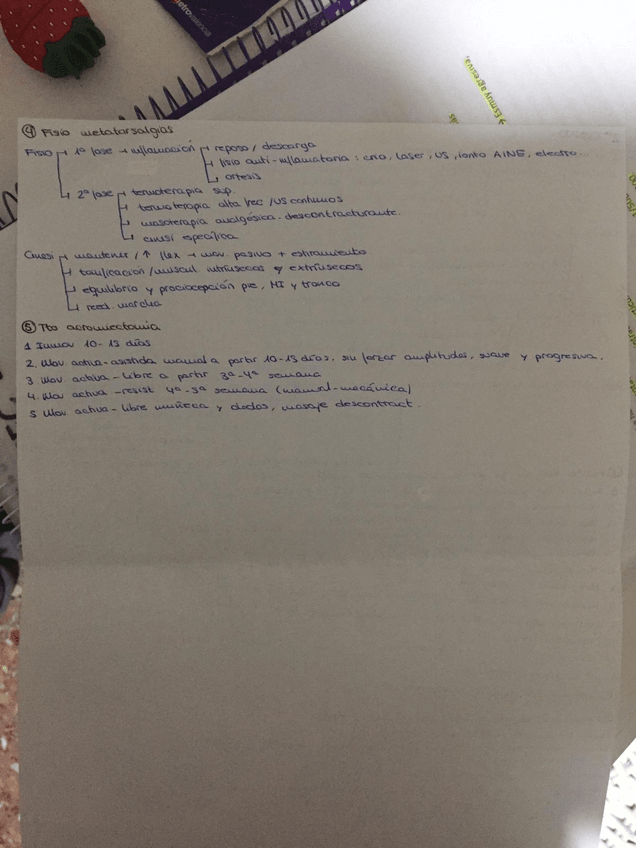 etrovalencia
→ Es muy agresiva.
④ Fisio metatarsalgias
Fisio 1ª fase → inflamación reposo / descarga
fisio anti-inflamatoria : crio, laser, US, ionto AINE, electro...
ortesis
2ª fase termoterapia sup.
termoterapia alta frec / US continuos
masoterapia analgésica. descontracturante.
cinesi específica
Cinesi mantener / ↑ flex → mov. pasivo + estiramiento
tonificación / muscul intrínsecos y extrínsecos
equilibrio y propiocepción pie, MI y tronco
reed. marcha
⑤ Tto acromiectomia
1 Inmov 10-15 días
2. Mov. activa-asistida manual a partir 10-15 días, sin forzar amplitudes, suave y progresiva.
3. Mov. activa-libre a partir 3ª-4ª semana
4. Mov activa-resist 4ª-5ª semana (manual-mecánica)
5 Mov activa-libre muñeca y dedos, masaje descontract.